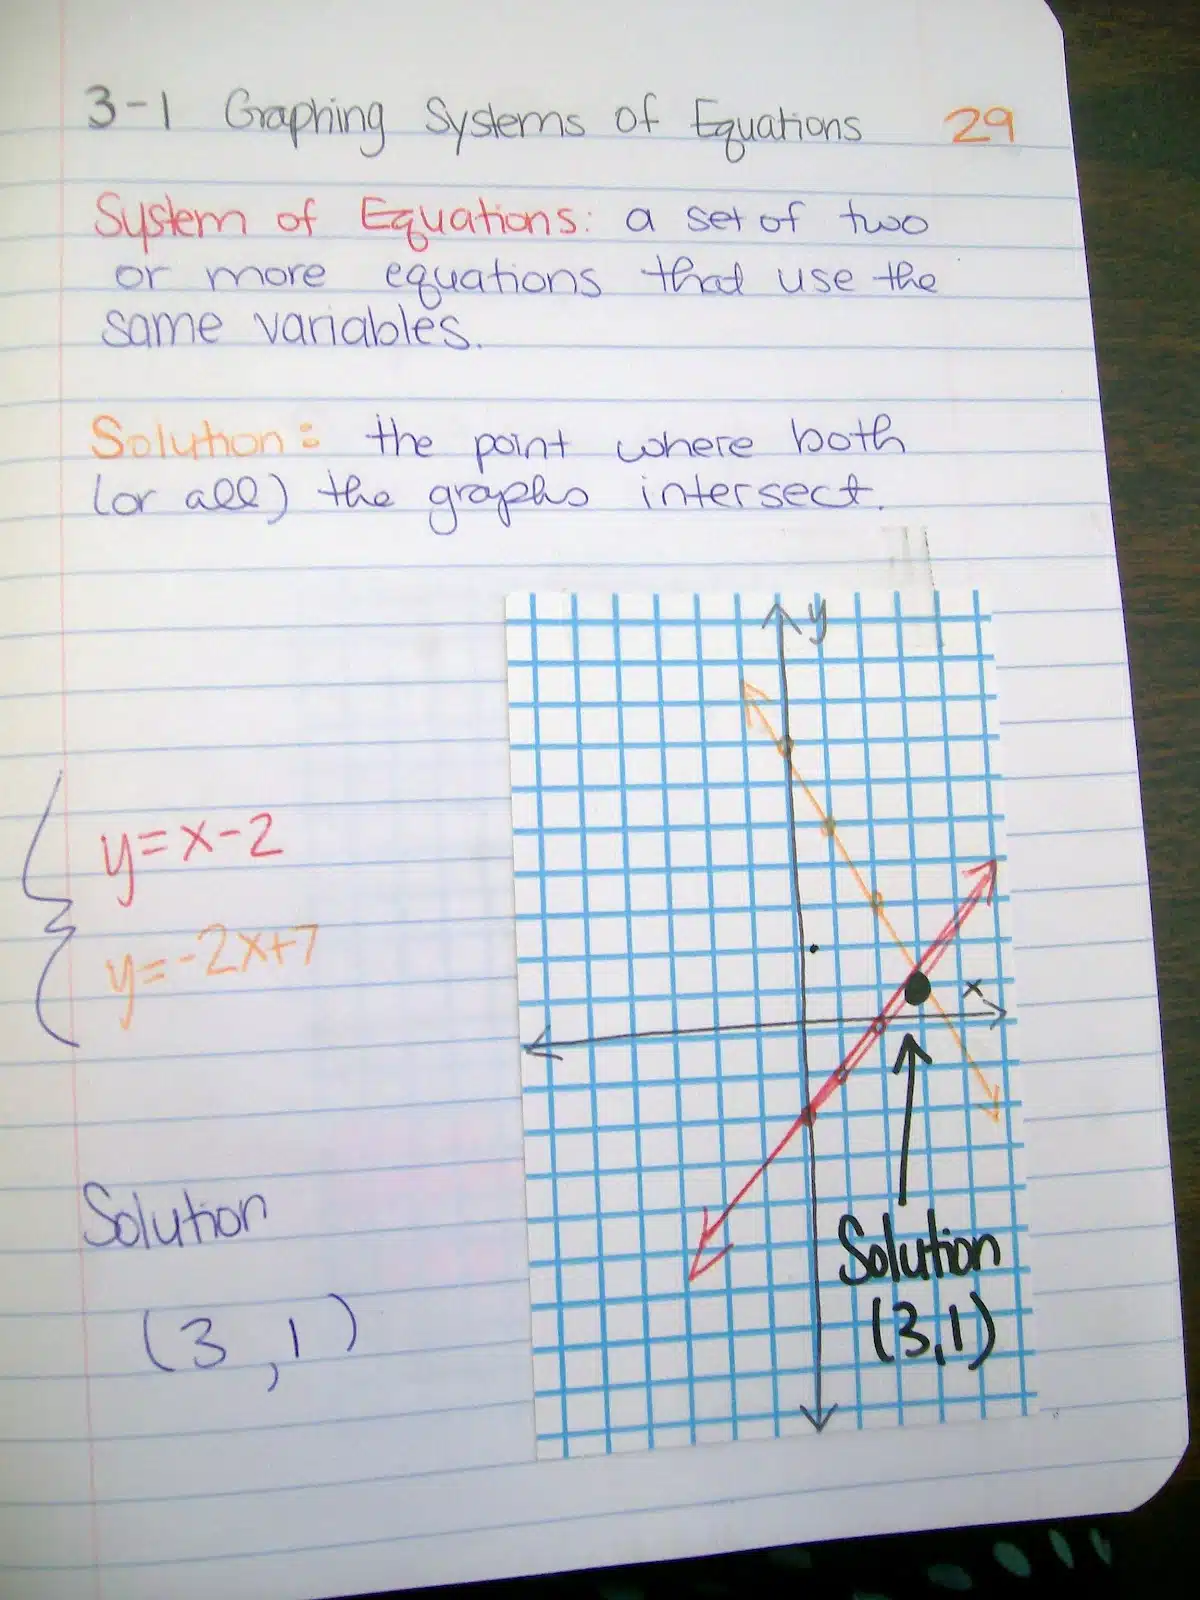 3-1 Graphing Systems of Equations 29
System of Equations: a set of two
or more equations that use the
same variables.
Solution: the point where both
(or all) the graphs intersect.
y
y=x-2
y=-2x+7
x
Solution
(3,1)
Solution
(3,1)